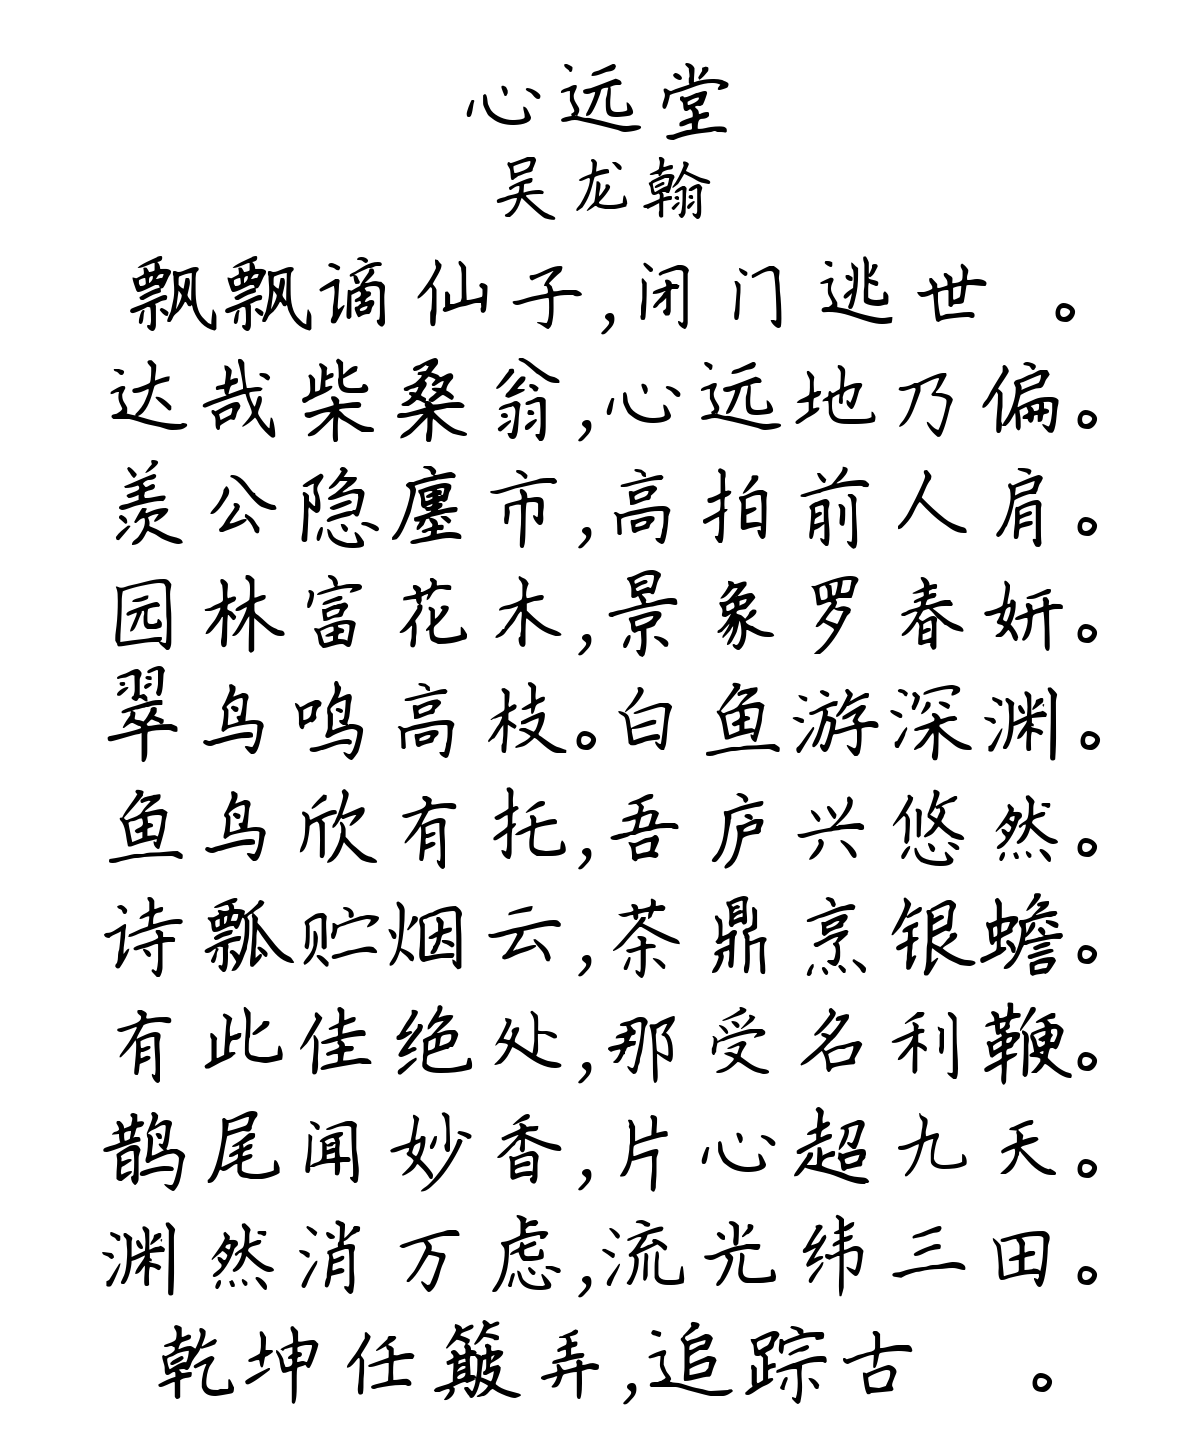 心远堂
吴龙翰
飘飘谪仙子,闭门逃世 。
达哉柴桑翁,心远地乃偏。
羡公隐廛市,高拍前人肩。
园林富花木,景象罗春妍。
翠鸟鸣高枝。白鱼游深渊。
鱼鸟欣有托,吾庐兴悠然。
诗瓢贮烟云,茶鼎烹银蟾。
有此佳绝处,那受名利鞭。
鹊尾闻妙香,片心超九天。
渊然消万虑,流光纬三田。
乾坤任簸弄,追踪古 。